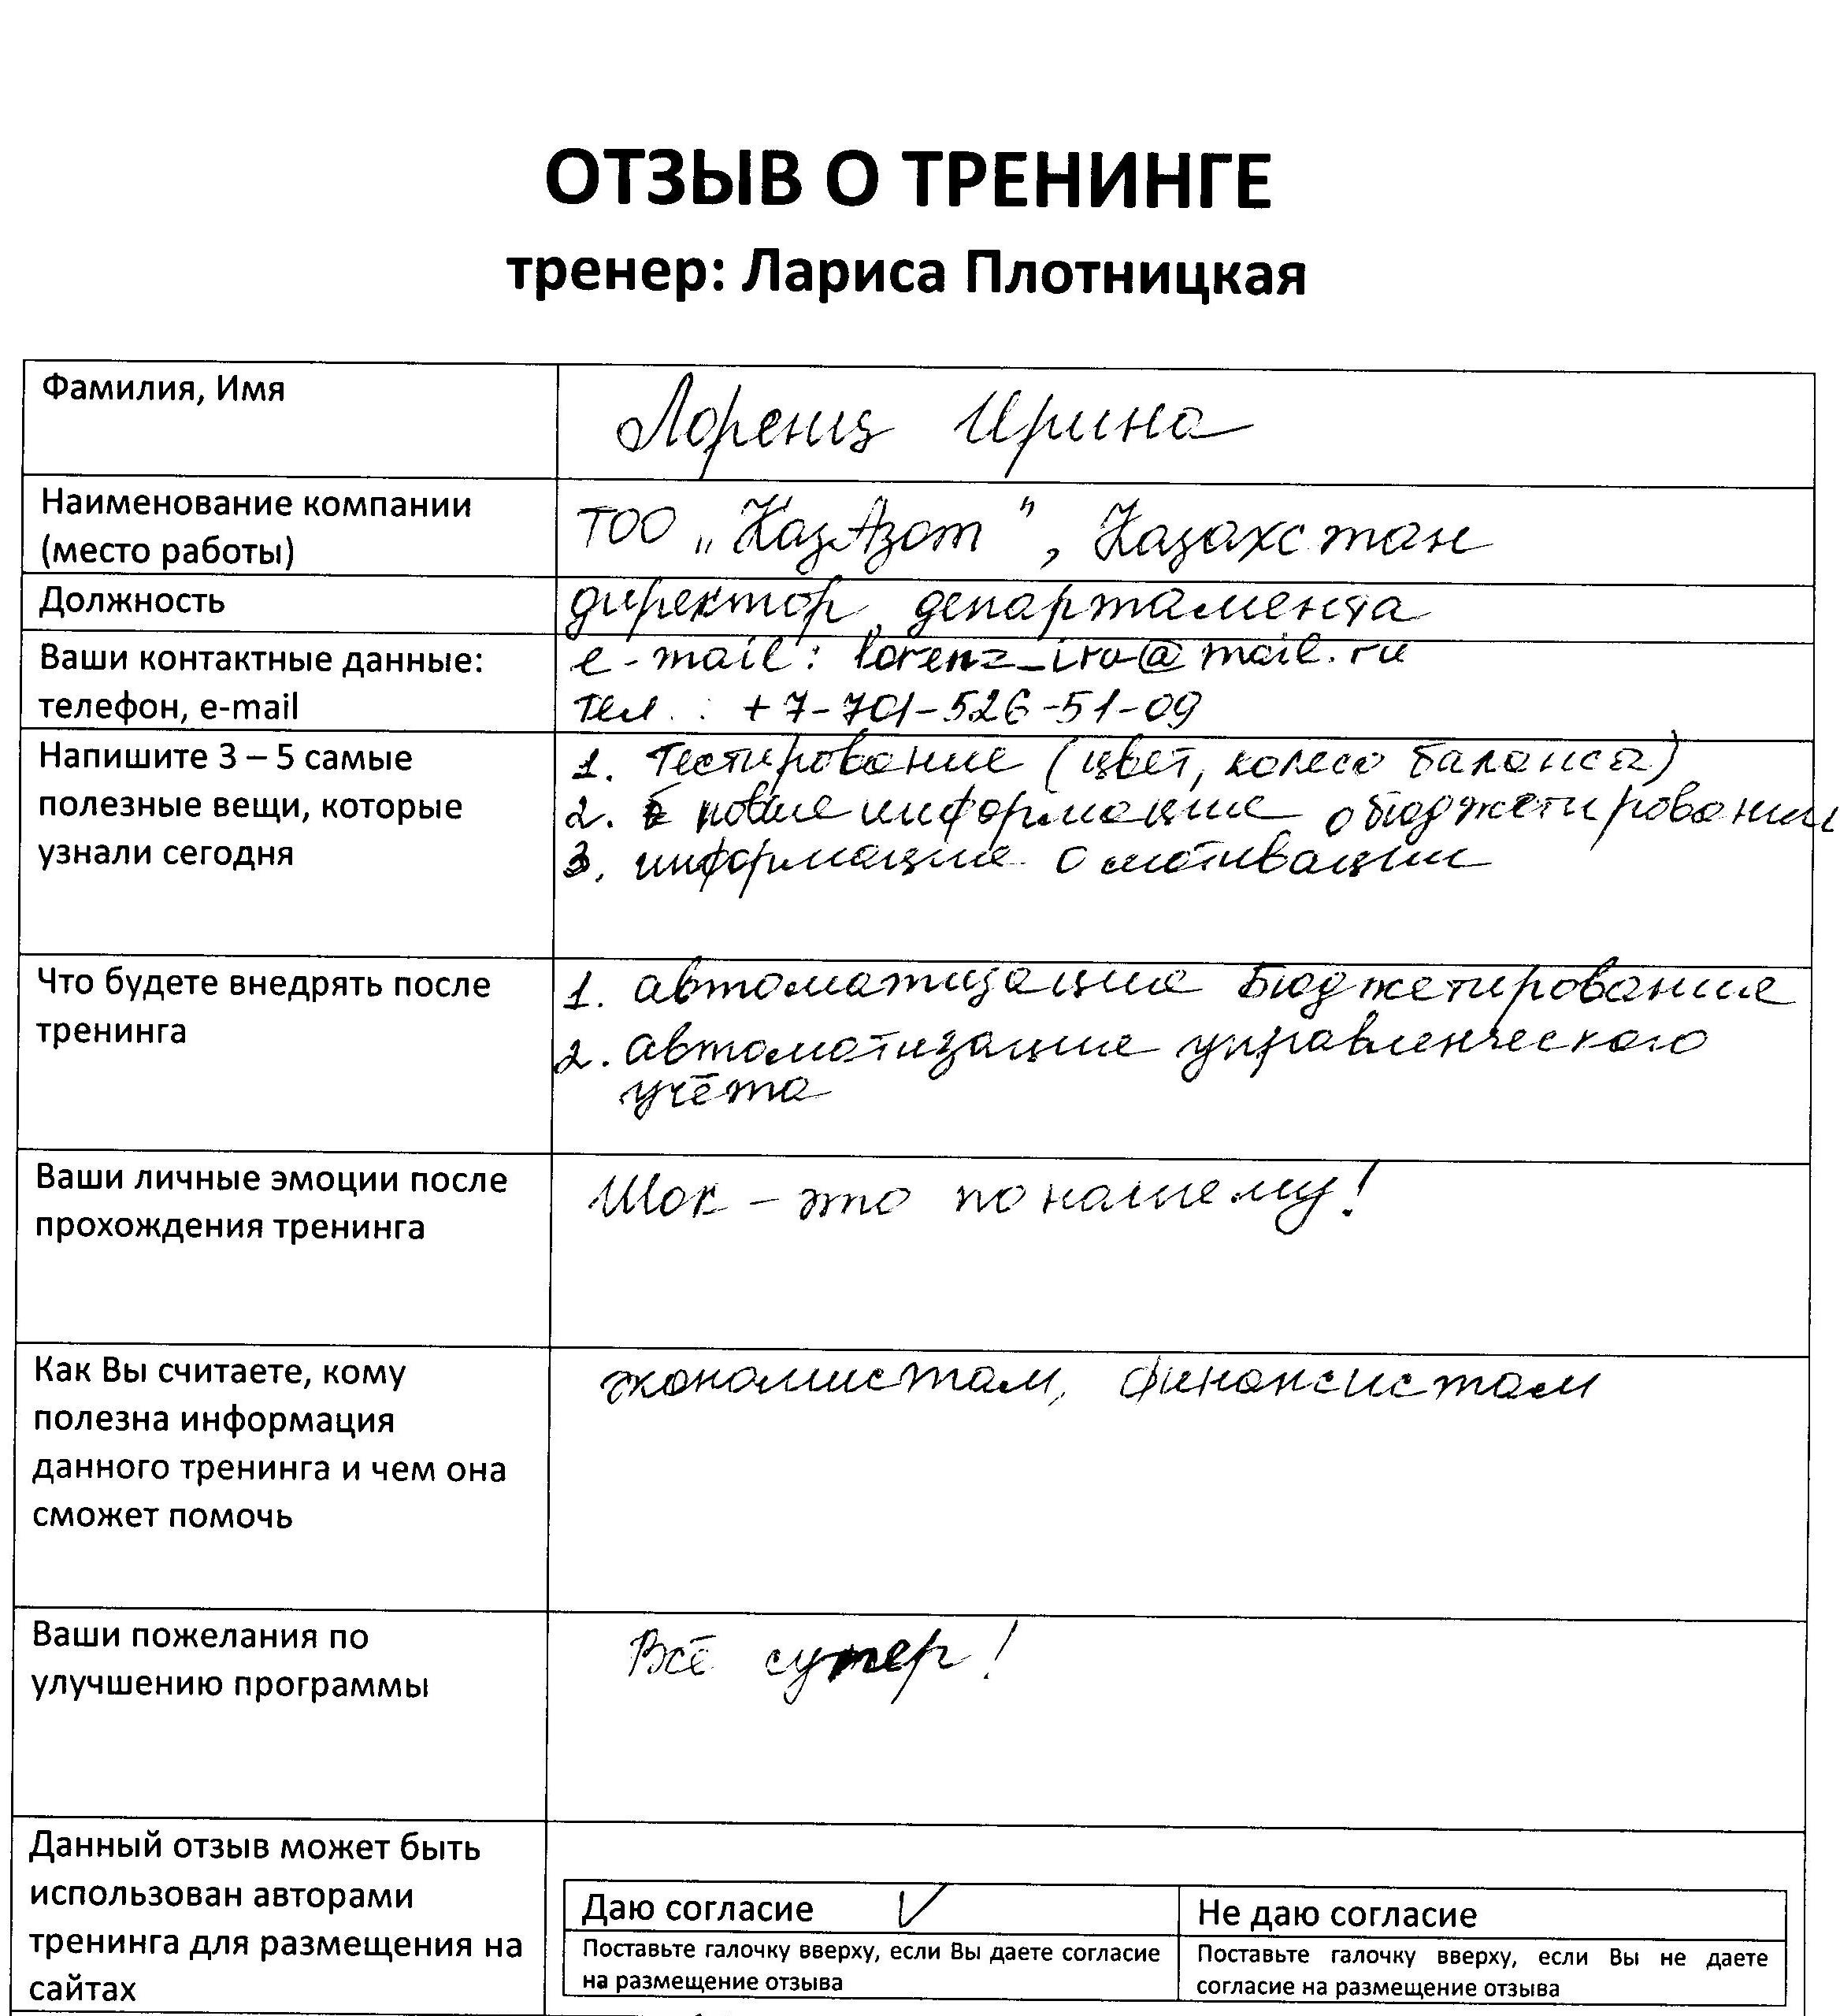 ОТЗЫВ О ТРЕНИНГЕ
тренер: Лариса Плотницкая
Фамилия, Имя
Лоренц Ирина
Наименование компании
(место работы)
ТОО „КазАзот", Казахстан
Должность
директор департамента
Ваши контактные данные:
телефон, e-mail
e-mail: lorenz_ira@mail.ru
тел.: +7-701-526-51-09
Напишите 3 – 5 самые
полезные вещи, которые
узнали сегодня
1. Тестирование (цвет, колесо баланса)
2. новые информация о бюджетировании
3. информация о мотивации
Что будете внедрять после
тренинга
1. автоматизация бюджетирования
2. автоматизация управленческого
учёта
Ваши личные эмоции после
прохождения тренинга
Шок – это по нашему!
Как Вы считаете, кому
полезна информация
данного тренинга и чем она
сможет помочь
экономистам, финансистам
Ваши пожелания по
улучшению программы
Всё супер!
Данный отзыв может быть
использован авторами
тренинга для размещения на
сайтах
Даю согласие ✓
Поставьте галочку вверху, если Вы даете согласие
на размещение отзыва
Не даю согласие
Поставьте галочку вверху, если Вы не даете
согласие на размещение отзыва